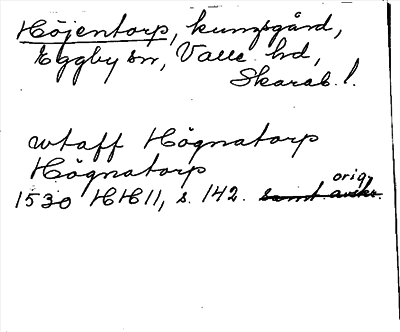 Höjentorp, kungsgård,
Eggby sn, Valle hd,
Skarab. l.
utaff Högnatorp
Högnatorp
orig.
1530 HH 11, s. 142. samt avskr.